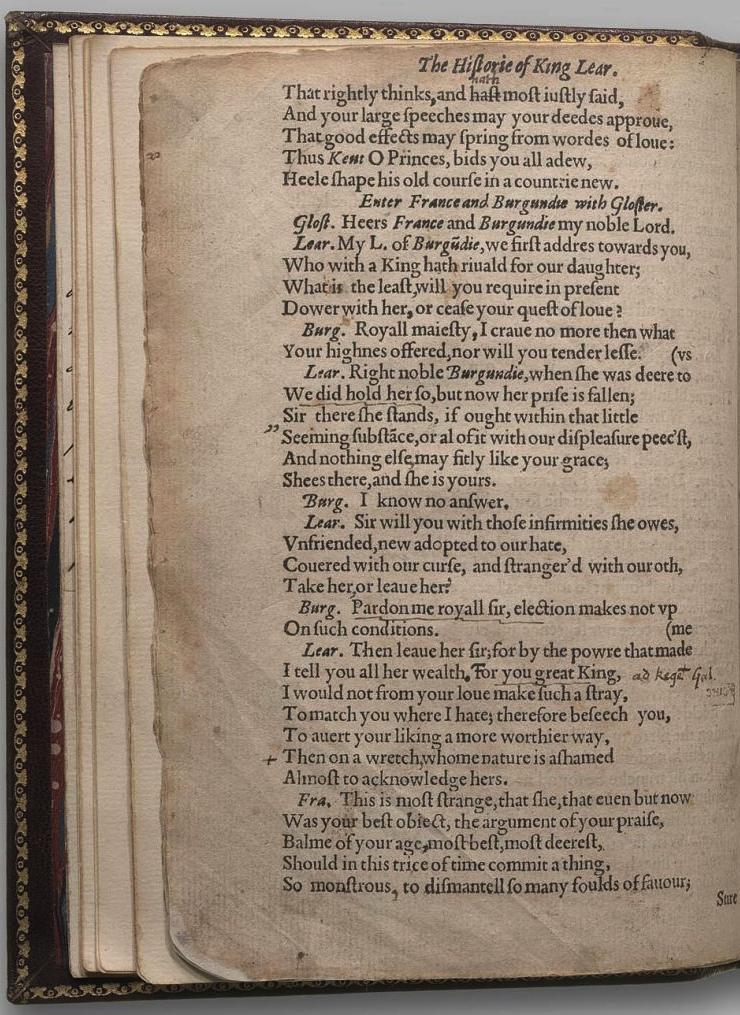 The Historie of King Lear.
hath
That rightly thinks, and hast most iustly said,
And your large speeches may your deedes approue,
That good effects may spring from wordes of loue:
Thus Kent O Princes, bids you all adew,
Heele shape his old course in a countrie new.
Enter France and Burgundie with Gloster.
Glost. Heers France and Burgundie my noble Lord.
Lear. My L. of Burgūdie, we first addres towards you,
Who with a King hath riuald for our daughter;
What is the least, will you require in present
Dower with her, or cease your quest of loue?
Burg. Royall maiesty, I craue no more then what
Your highnes offered, nor will you tender lesse. (vs
Lear. Right noble Burgundie, when she was deere to
We did hold her so, but now her prise is fallen;
Sir there she stands, if ought within that little
" Seeming substāce, or al of it with our displeasure peec'st,
And nothing else, may fitly like your grace;
Shees there, and she is yours.
Burg. I know no answer.
Lear. Sir will you with those infirmities she owes,
Vnfriended, new adopted to our hate,
Couered with our curse, and stranger'd with our oth,
Take her, or leaue her?
Burg. Pardon me royall sir, election makes not vp
On such conditions. (me
Lear. Then leaue her sir, for by the powre that made
I tell you all her wealth, For you great King, ad Gal.
I would not from your loue make such a stray,
To match you where I hate; therefore beseech you,
To auert your liking a more worthier way,
+ Then on a wretch, whome nature is ashamed
Almost to acknowledge hers.
Fra. This is most strange, that she, that euen but now
Was your best obiect, the argument of your praise,
Balme of your age, most best, most deerest,
Should in this trice of time commit a thing,
So monstrous, to dismantell so many foulds of fauour;
Sure